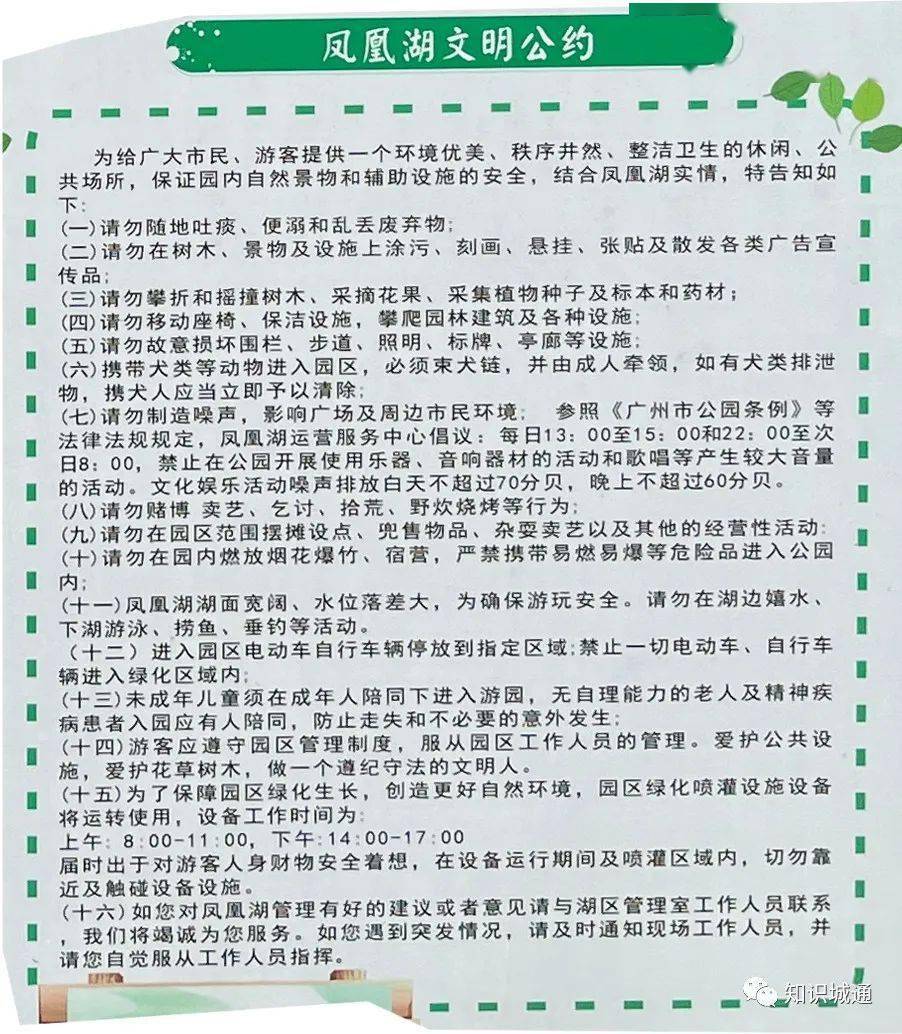 凤凰湖文明公约
为给广大市民、游客提供一个环境优美、秩序井然、整洁卫生的休闲、公
共场所，保证园内自然景物和辅助设施的安全，结合凤凰湖实情，特告知如
下：
(一)请勿随地吐痰、便溺和乱丢废弃物；
(二)请勿在树木、景物及设施上涂污、刻画、悬挂、张贴及散发各类广告宣
传品；
(三)请勿攀折和摇撞树木、采摘花果、采集植物种子及标本和药材；
(四)请勿移动座椅、保洁设施，攀爬园林建筑及各种设施；
(五)请勿故意损坏围栏、步道、照明、标牌、亭廊等设施；
(六)携带犬类等动物进入园区，必须束犬链，并由成人牵领，如有犬类排泄
物，携犬人应当立即予以清除；
(七)请勿制造噪声，影响广场及周边市民环境； 参照《广州市公园条例》等
法律法规规定，凤凰湖运营服务中心倡议：每日13：00至15：00和22：00至次
日8：00，禁止在公园开展使用乐器、音响器材的活动和歌唱等产生较大音量
的活动。文化娱乐活动噪声排放白天不超过70分贝，晚上不超过60分贝。
(八)请勿赌博 卖艺、乞讨、拾荒、野炊烧烤等行为；
(九)请勿在园区范围摆摊设点、兜售物品、杂耍卖艺以及其他的经营性活动：
(十)请勿在园内燃放烟花爆竹、宿营，严禁携带易燃易爆等危险品进入公园
内；
(十一)凤凰湖湖面宽阔、水位落差大，为确保游玩安全。请勿在湖边嬉水、
下湖游泳、捞鱼、垂钓等活动。
（十二）进入园区电动车自行车辆停放到指定区域；禁止一切电动车、自行车
辆进入绿化区域内；
(十三)未成年儿童须在成年人陪同下进入游园，无自理能力的老人及精神疾
病患者入园应有人陪同，防止走失和不必要的意外发生；
(十四)游客应遵守园区管理制度，服从园区工作人员的管理。爱护公共设
施，爱护花草树木，做一个遵纪守法的文明人。
(十五)为了保障园区绿化生长，创造更好自然环境，园区绿化喷灌设施设备
将运转使用，设备工作时间为：
上午：8:00-11:00，下午:14:00-17:00
届时出于对游客人身财物安全着想，在设备运行期间及喷灌区域内，切勿靠
近及触碰设备设施。
(十六)如您对凤凰湖管理有好的建议或者意见请与湖区管理室工作人员联系
，我们将竭诚为您服务。如您遇到突发情况，请及时通知现场工作人员，并
请您自觉服从工作人员指挥。
知识城通